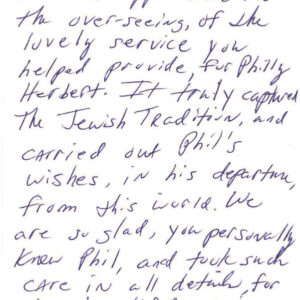 the over-seeing, of the
lovely service you
helped provide, for Philly
Herbert. It truly captured
The Jewish Tradition, and
carried out Phil's
wishes, in his departure,
from this world. We
are so glad, you personally
knew Phil, and took such
care in all details, for